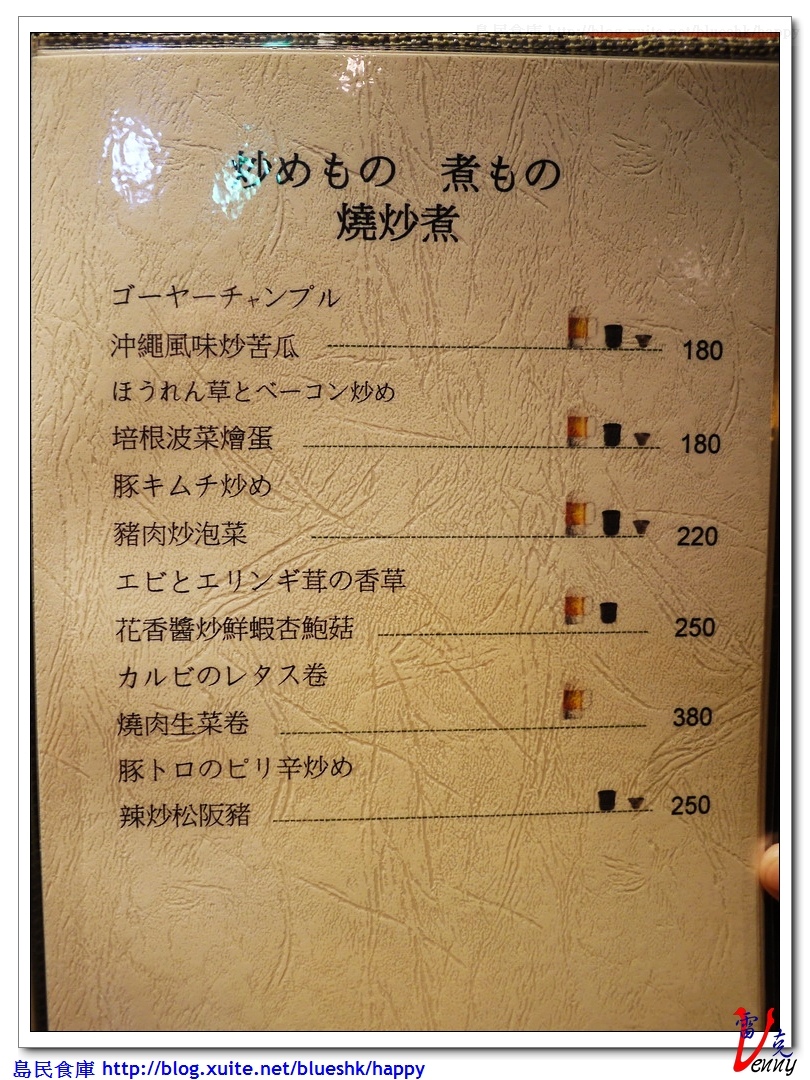 炒めもの 煮もの
燒炒煮
ゴーヤーチャンプル
沖繩風味炒苦瓜 180
ほうれん草とベーコン炒め
培根波菜燴蛋 180
豚キムチ炒め
豬肉炒泡菜 220
エビとエリンギ茸の香草
花香醬炒鮮蝦杏鮑菇 250
カルビのレタス卷
燒肉生菜卷 380
豚トロのピリ辛炒め
辣炒松阪豬 250
雷克
Venny
島民食庫 http://blog.xuite.net/blueshk/happy